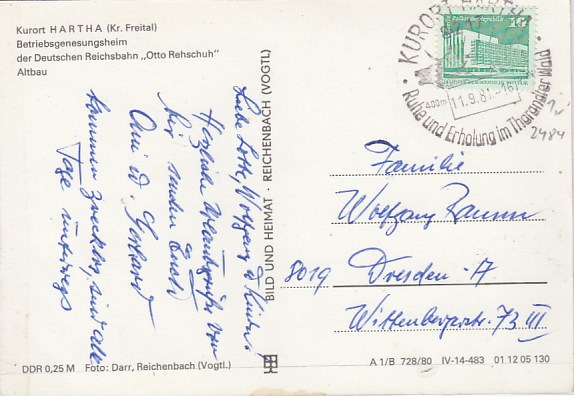 Kurort HARTHA (Kr. Freital)
Betriebsgenesungsheim
der Deutschen Reichsbahn „Otto Rehschuh"
Altbau
KURORT HARTHA
10
400m
11.9.81.-16
Ruhe und Erholung im Tharandter Wald
2484
Liebe Lotte, Wolfgang u. Kinder!
Herzliche Urlaubsgrüße von
hier senden Euch
Ani u. Gerhard
kommen zwecklos, sind alle
Tage unterwegs
BILD UND HEIMAT · REICHENBACH (VOGTL)
Familie
Wolfgang
8019 Dresden - A
Wittenbergerstr. 73 III
DDR 0,25 M Foto: Darr, Reichenbach (Vogtl.)
A 1/B 728/80 IV-14-483 01 12 05 130